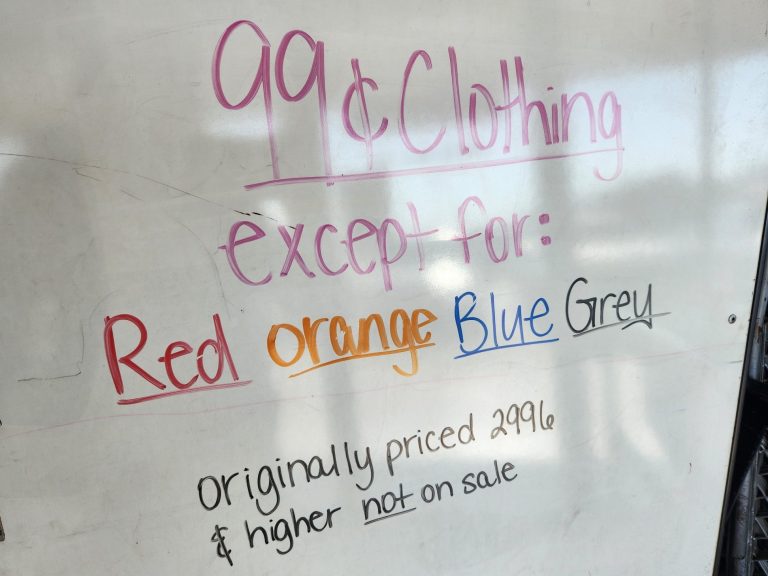 99¢ Clothing
except for:
Red orange Blue Grey
originally priced 2996
& higher not on sale